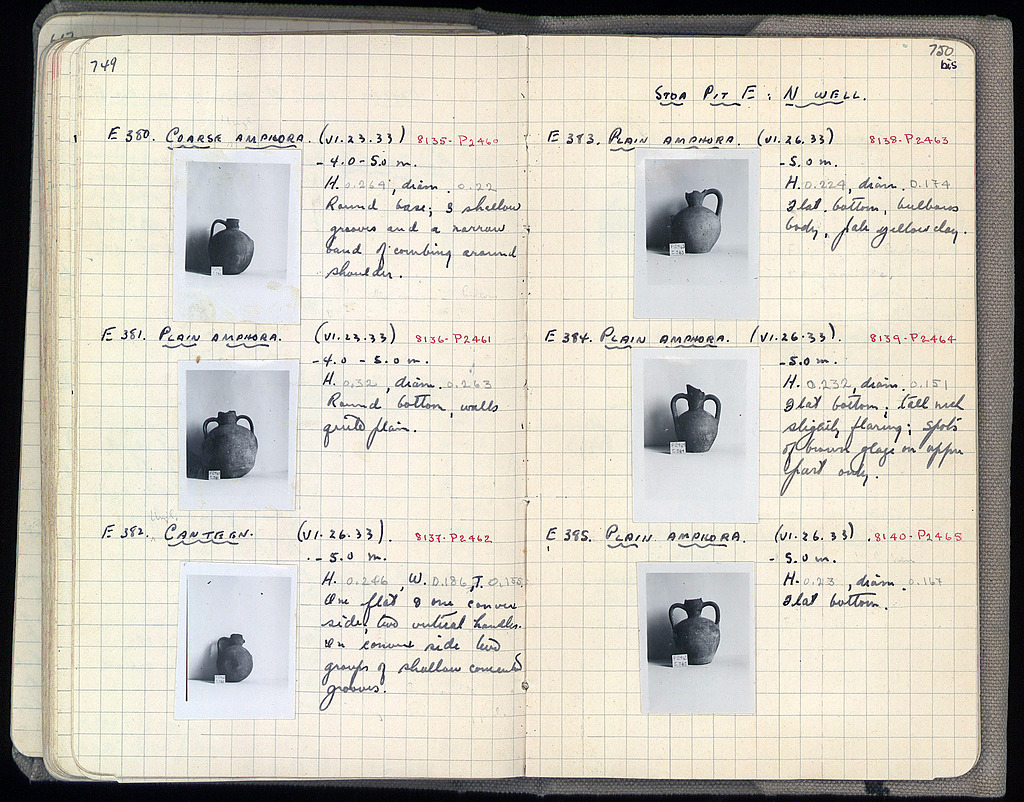 749
E 380. COARSE AMPHORA. (VI.23.33) 8135-P2460
-4.0-5.0 m.
H. 0.264, diam. 0.22
Round base; 3 shallow
grooves and a narrow
band of combing around
shoulder.
E 381. PLAIN AMPHORA. (VI.23.33) 8136-P2461
-4.0 - 5.0 m.
H. 0.32, diam. 0.263
Round bottom, walls
quite plain.
E 382. CANTEEN. (VI.26.33). 8137-P2462
-5.0 m.
H. 0.246, W. 0.186, T.
One flat & one convex
side, two vertical handles.
On convex side two
groups of shallow concentric
grooves.
750
bis
STOA PIT E: N WELL.
E 383. PLAIN AMPHORA. (VI.26.33) 8138-P2463
-5.0 m.
H. 0.224, diam. 0.174
Flat bottom, bulbous
body, pale yellow clay.
E 384. PLAIN AMPHORA. (VI.26.33) 8139-P2464
-5.0 m.
H. 0.232, diam. 0.151
Flat bottom; tall neck
slightly flaring; spots
of brown glaze on upper
part only.
E 385. PLAIN AMPHORA. (VI.26.33). 8140-P2465
-5.0 m.
H. 0.23, diam. 0.167
Flat bottom.